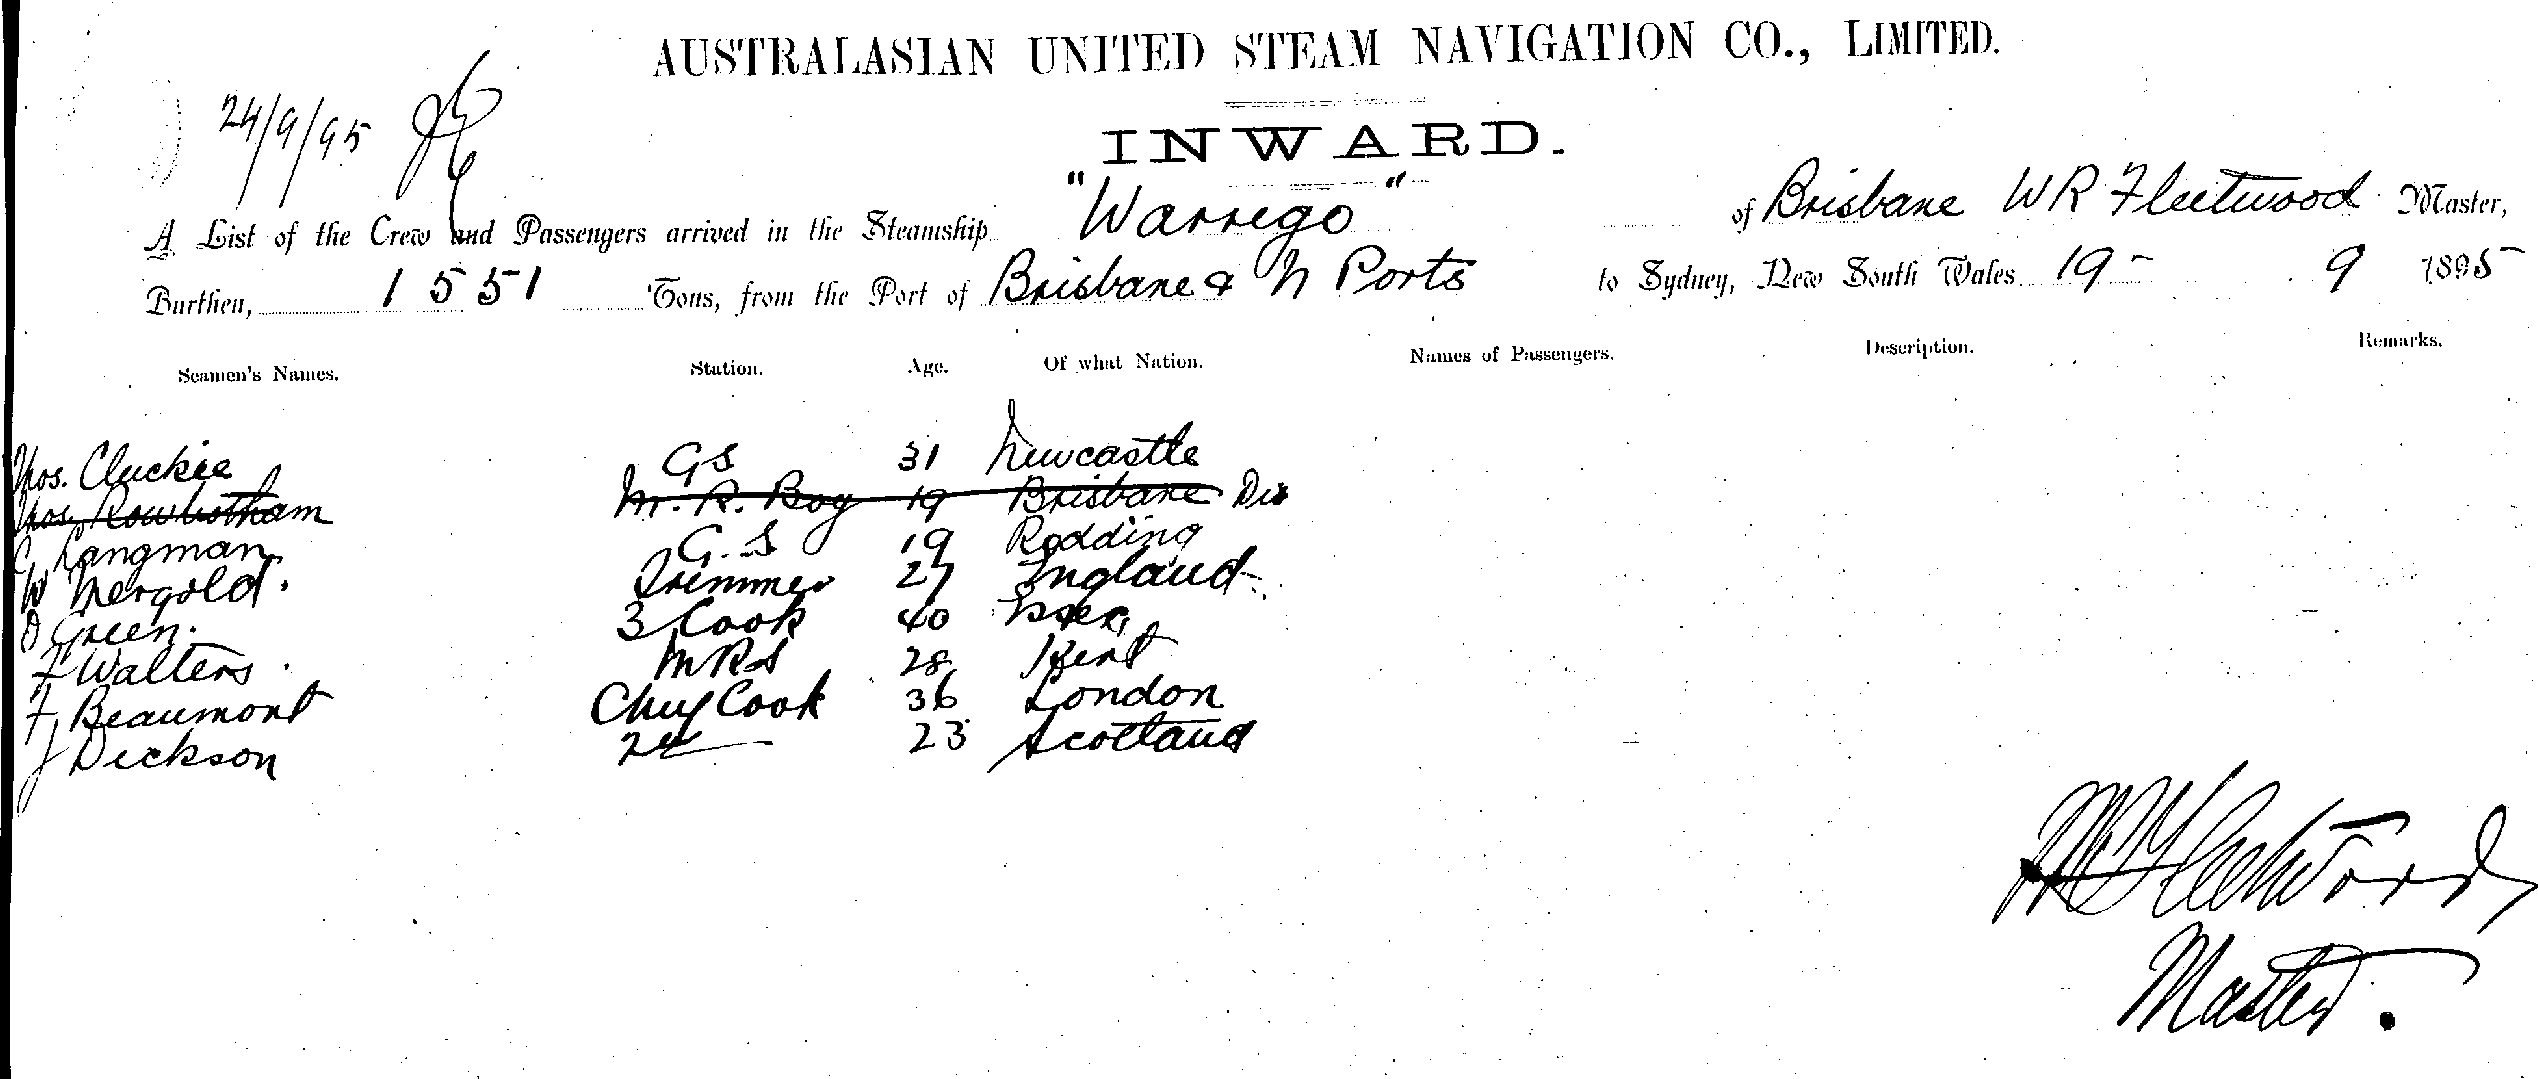 AUSTRALASIAN UNITED STEAM NAVIGATION CO., LIMITED.
24/9/95
INWARD.
A List of the Crew and Passengers arrived in the Steamship "Warrego" of Brisbane W R Fleetwood Master,
Burthen, 1551 Tons, from the Port of Brisbane & N Ports to Sydney, New South Wales 19 - 9 1895
Seamen's Names. Station. Age. Of what Nation. Names of Passengers. Description. Remarks.
Thos. Cluckie GS 31 Newcastle
Thos. Rowbotham M. R. Boy 19 Brisbane Dis
C Langman G.S 19 Redding
W Mergold. Trimmer 27 England
D Green. 3 Cook 40 Essex
F Walters MRS 28 Kent
F Beaumont Chief Cook 36 London
J Dickson 2nd 23 Scotland
W R Fleetwood
Master.